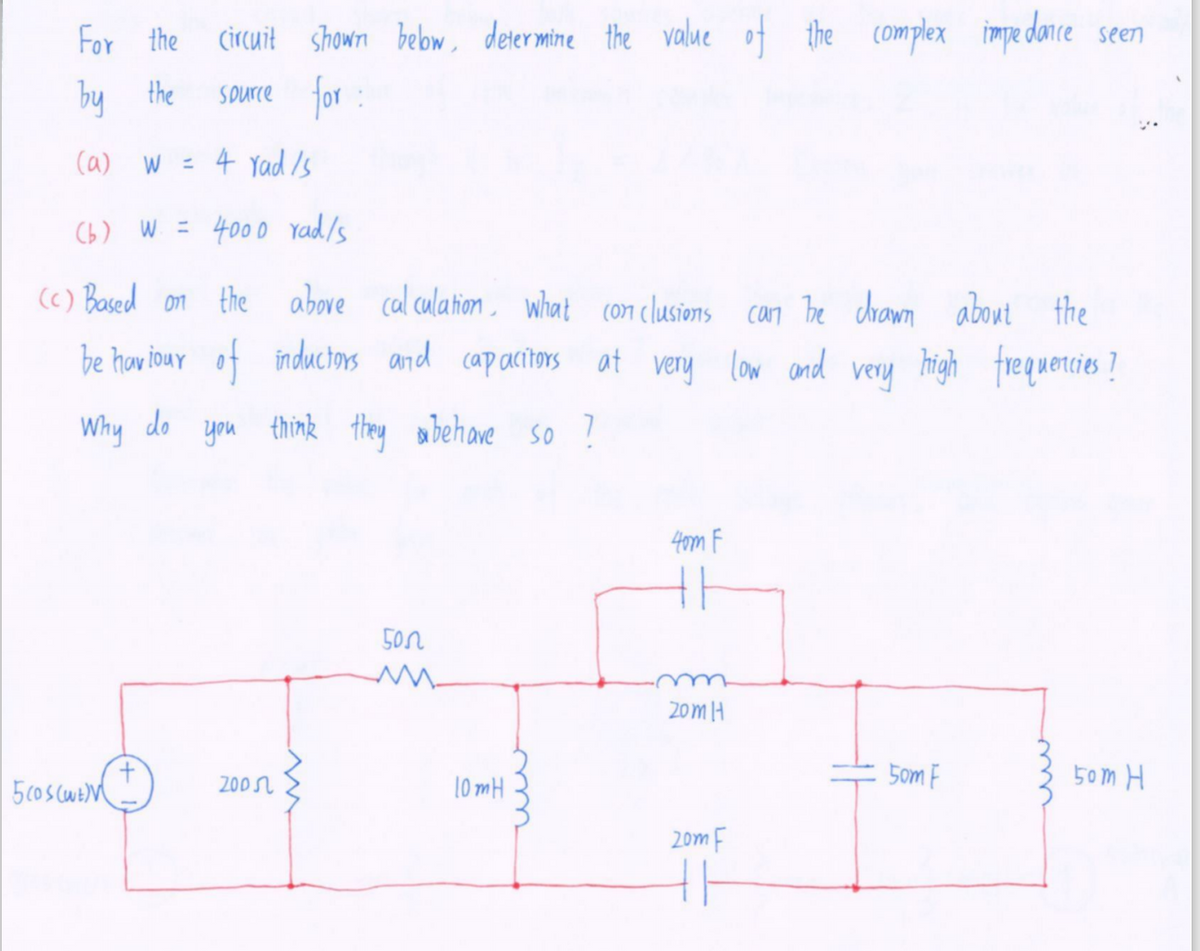 For the circuit shown below, determine the value of the complex impedance seen
by the source for :
(a) w = 4 rad/s
(b) w = 4000 rad/s
(c) Based on the above calculation, what conclusions can be drawn about the
behaviour of inductors and capacitors at very low and very high frequencies?
Why do you think they behave so ?
40mF
50Ω
20mH
5cos(wt)V
+
−
200Ω
10mH
50mF
50mH
20mF